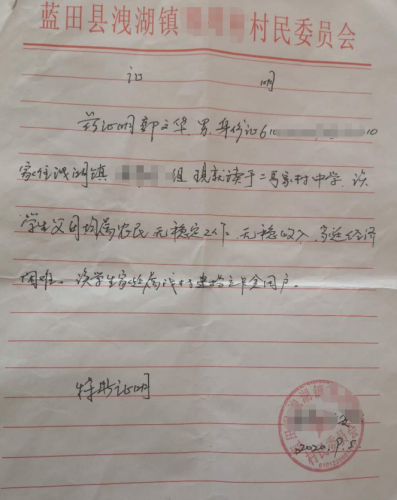 蓝田县洩湖镇 村民委员会
证 明
兹证明郭文华，男，身份证610 10
家住洩湖镇 组，现就读于 中学，该
学生父母均属农民，无稳定工作，无稳收入，家庭经济
困难。该学生家庭属我村建档立卡贫困户。
特此证明
2020.9.5.